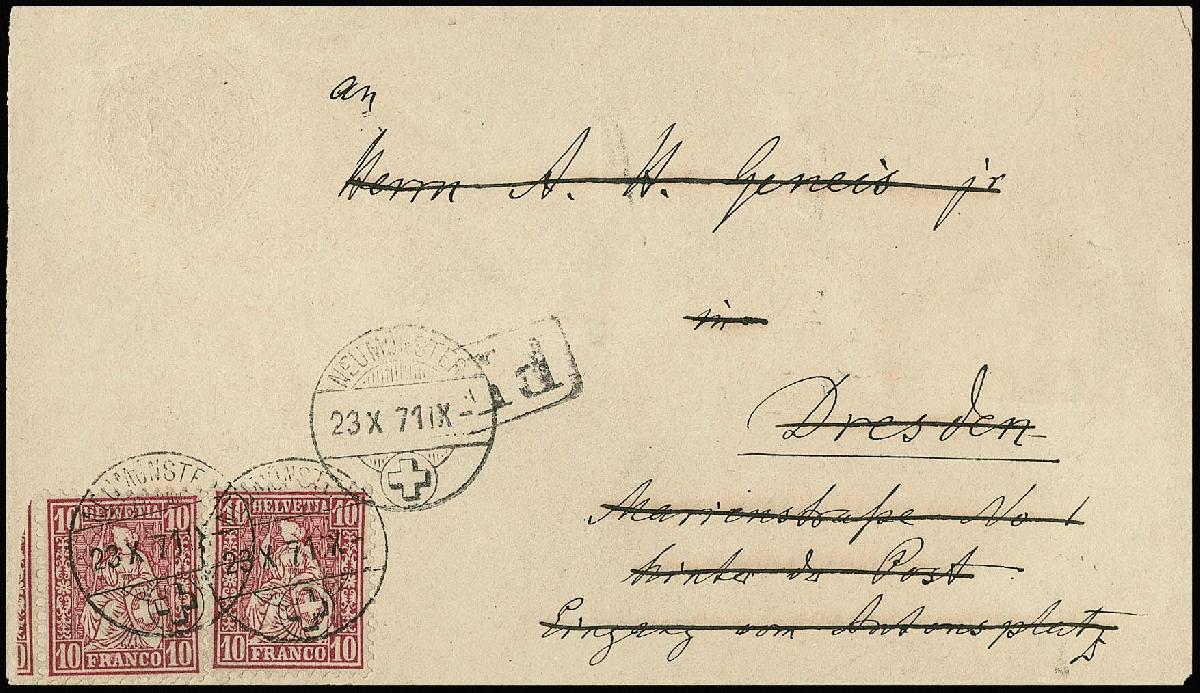 an
Herrn A. H. Geneis jr
in
Dresden
Marienstraße No 1
hinter der Post
Eingang vom Antonsplatz
NEUMÜNSTER
23 X 71 IX-
P.D.
NEUMÜNSTER
23 X 71
NEUMÜNSTER
23 X 71 IX-
10 HELVETIA 10
10 FRANCO 10
10 HELVETIA 10
10 FRANCO 10